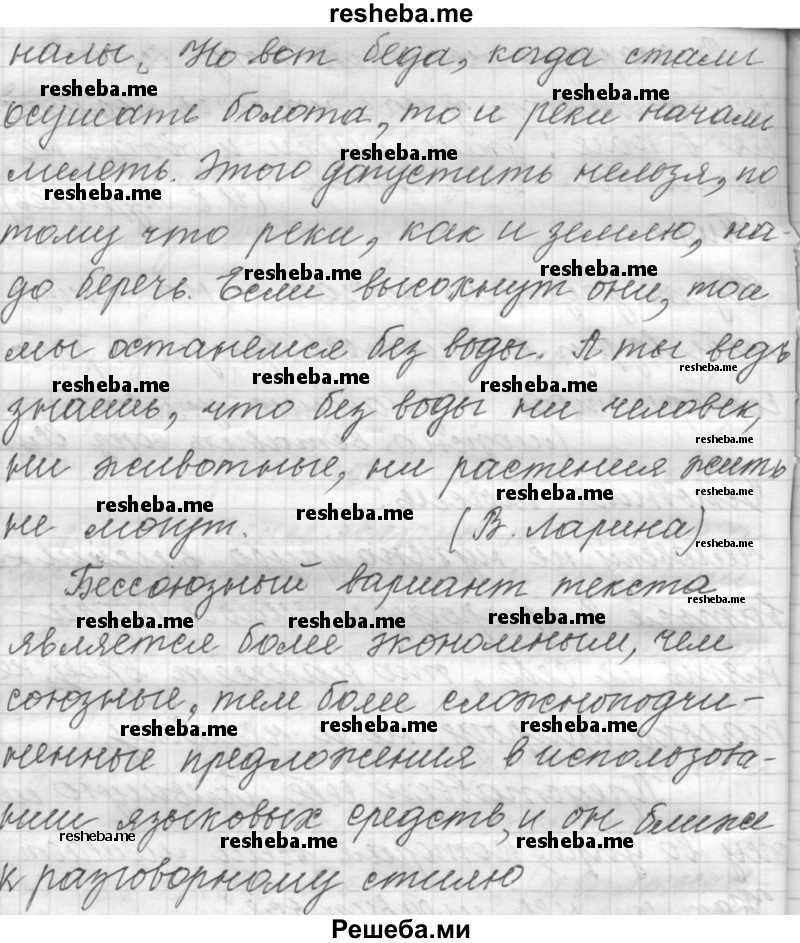 resheba.me
налы. Но вот беда, когда стали
resheba.me resheba.me
осушать болота, то и реки начали
resheba.me
мелеть. Этого допустить нельзя, по
resheba.me
тому что реки, как и землю, на-
resheba.me resheba.me
до беречь. Если высохнут они, то
мы останемся без воды. А ты ведь
resheba.me resheba.me resheba.me resheba.me
знаешь, что без воды ни человек,
resheba.me
ни животные, ни растения жить
resheba.me resheba.me resheba.me resheba.me
не могут. (В. Ларина)
resheba.me
Бессоюзный вариант текста
resheba.me resheba.me resheba.me resheba.me
является более экономным, чем
союзные, тем более сложноподчи-
resheba.me resheba.me resheba.me
ненные предложения в использова-
нии языковых средств, и он ближе
resheba.me resheba.me resheba.me
к разговорному стилю
Решеба.ми